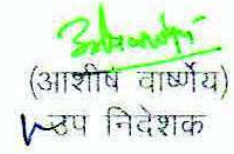 (आशीष वार्ष्णेय)
उप निदेशक